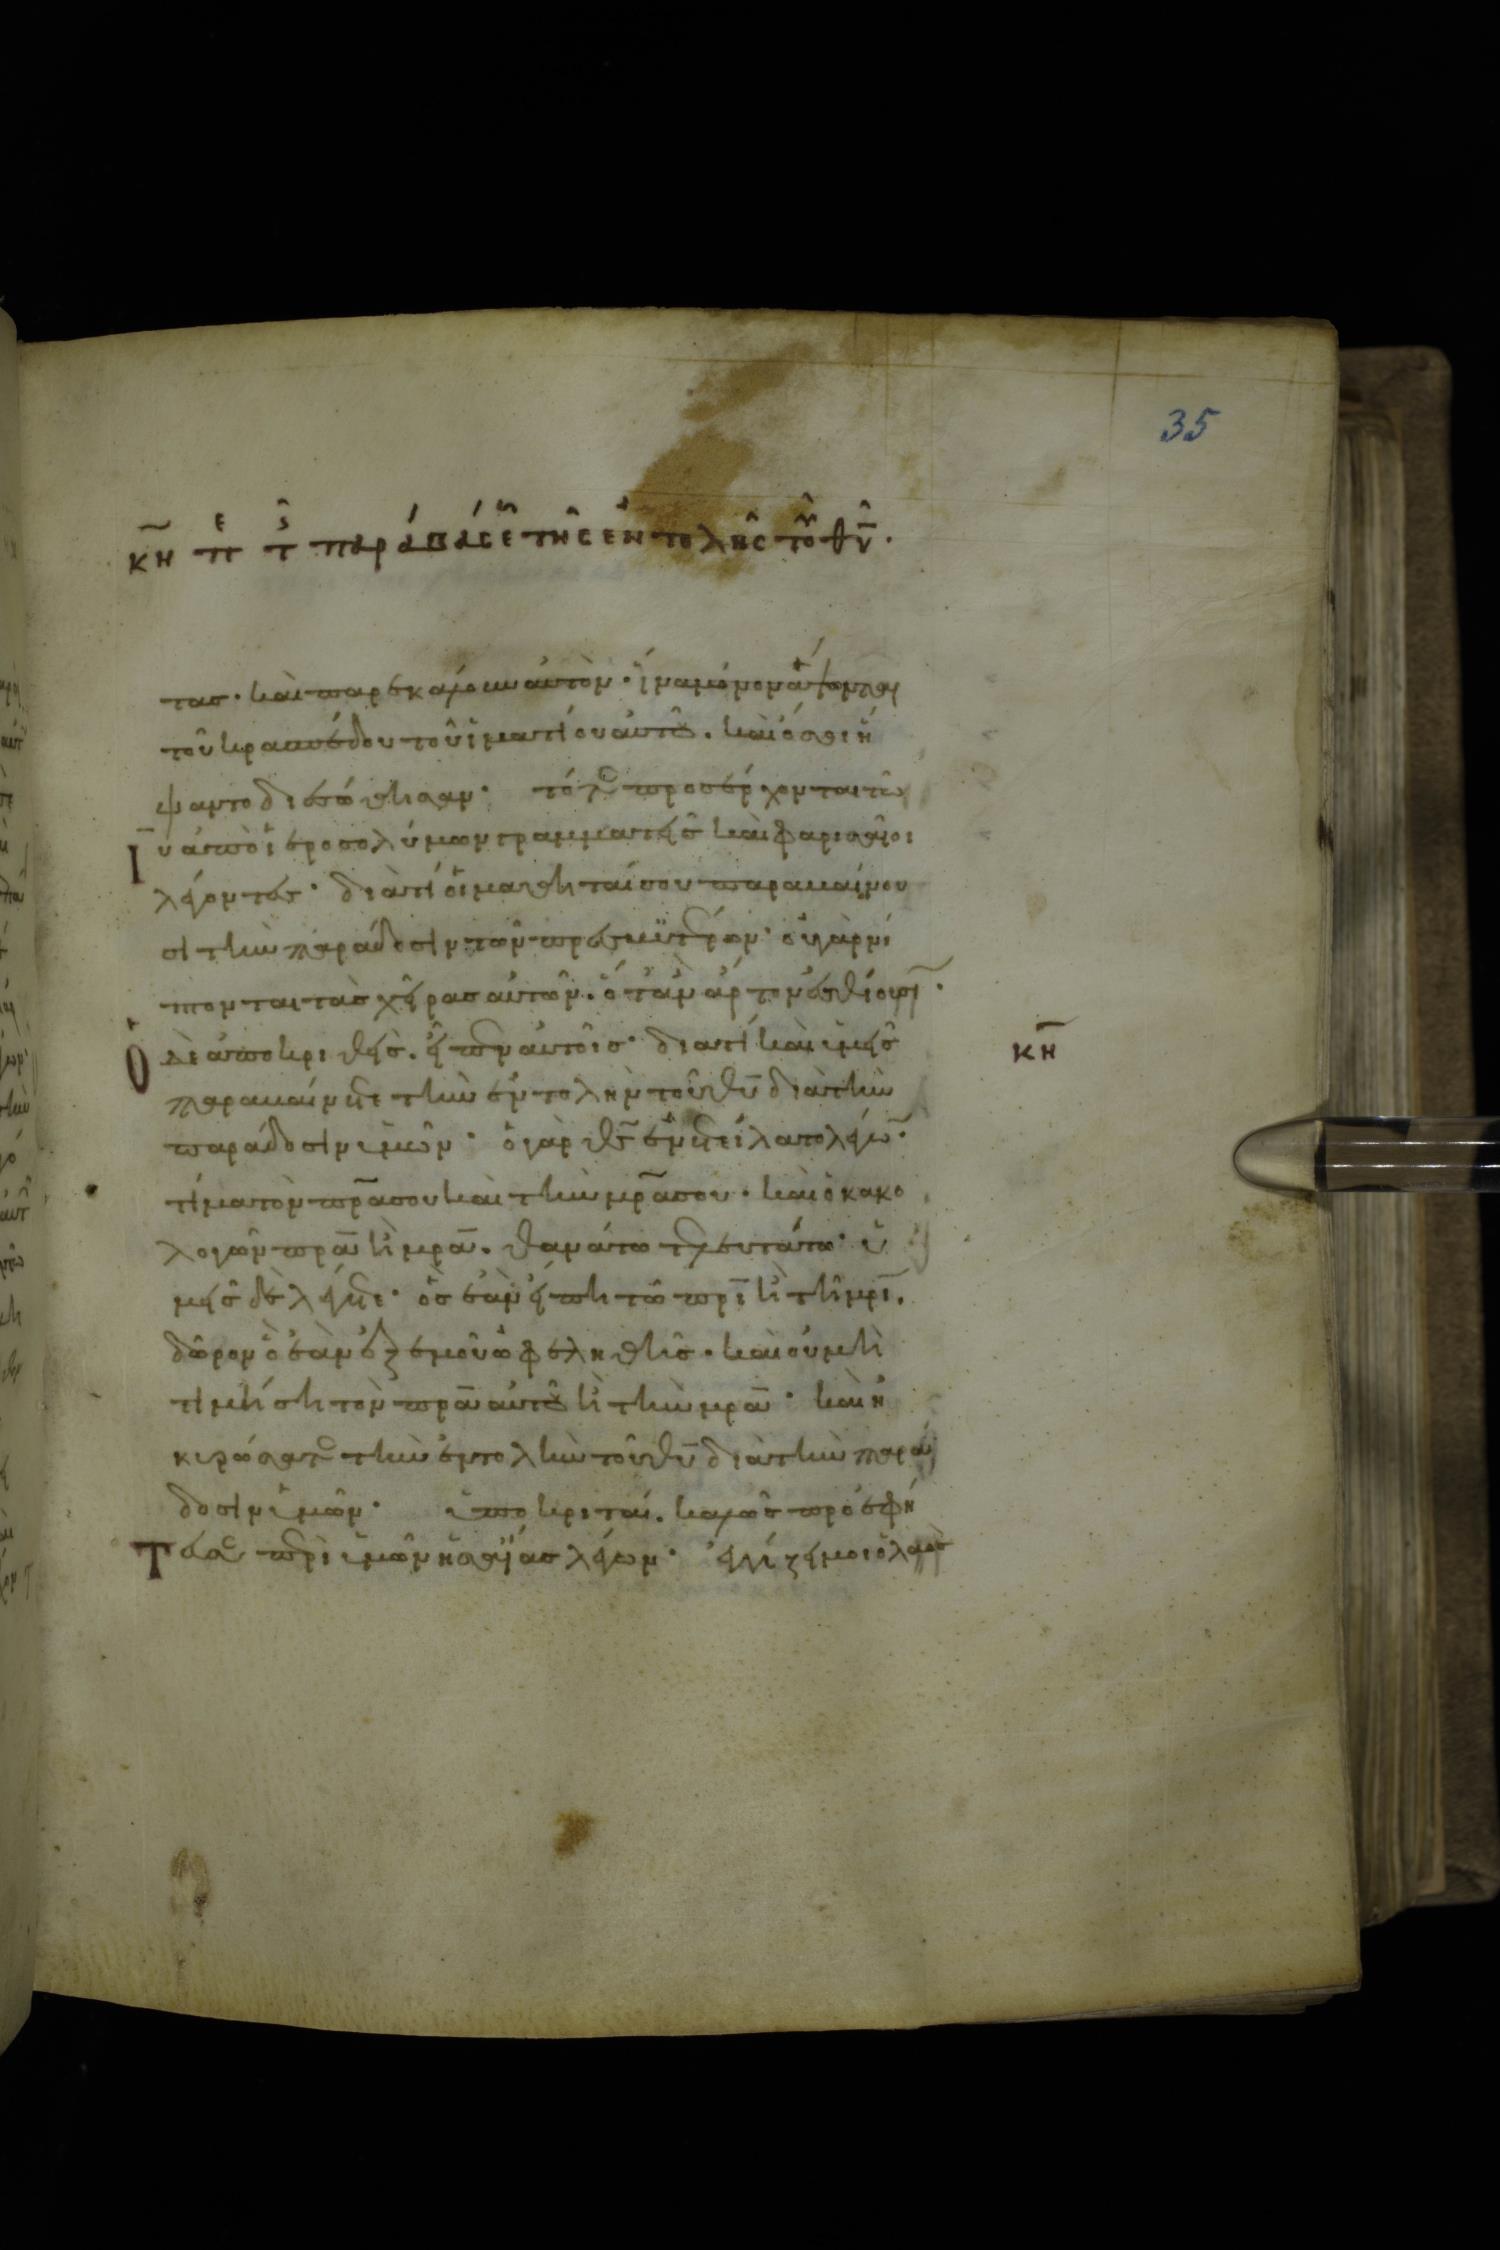 35
κη πε τς παραβάσε τῆς ἐντολῆς τοῦ θυ.
τασ· καὶ παρεκάλουν αὐτὸν· ἵνα μόνον ἅψωνται
τοῦ κρασπέδου τοῦ ἱματίου αὐτοῦ. καὶ ὅσοι ἥ
ψαντο διεσώθησαν· τότε προσέρχονται τῶ
ιυ ἀπὸ ἱεροσολύμων γραμματεῖς καὶ φαρισαῖοι
λέγοντες· διατί οἱ μαθηταί σου παραβαίνου
σι τὴν παράδοσιν τῶν πρεσβυτέρων· οὐ γὰρ νί
πτονται τὰς χεῖρας αὐτῶν. ὅταν ἄρτον ἐσθίωσι·
ὁ δὲ ἀποκριθεὶς. εἶπεν αὐτοῖς· διατί καὶ ὑμεῖς
κη
παραβαίνετε τὴν ἐντολὴν τοῦ θυ διὰ τὴν
παράδοσιν ὑμῶν· ὁ γὰρ θς ἐνετείλατο λέγων·
τίμα τὸν πρα σου καὶ τὴν μρα σου. καὶ ὁ κακο
λογῶν πρα ἢ μρα. θανάτω τελευτάτω· ὑ
μεῖς δὲ λέγετε· ὃς ἐὰν εἴπη τῶ πρι ἢ τῆ μρι.
δῶρον ὃ ἐὰν ἐξ ἐμοῦ ὠφεληθῆς. καὶ οὐ μὴ
τιμήση τὸν πρα αὐτοῦ ἢ τὴν μρα· καὶ ἠ
κυρώσατε τὴν ἐντολὴν τοῦ θυ διὰ τὴν παρά
δοσιν ὑμῶν· ὑποκριταί. καλῶς προεφή
τευσε περὶ ὑμῶν ἡσαΐας λέγων· ἐγγίζει μοι ὁ λαὸς